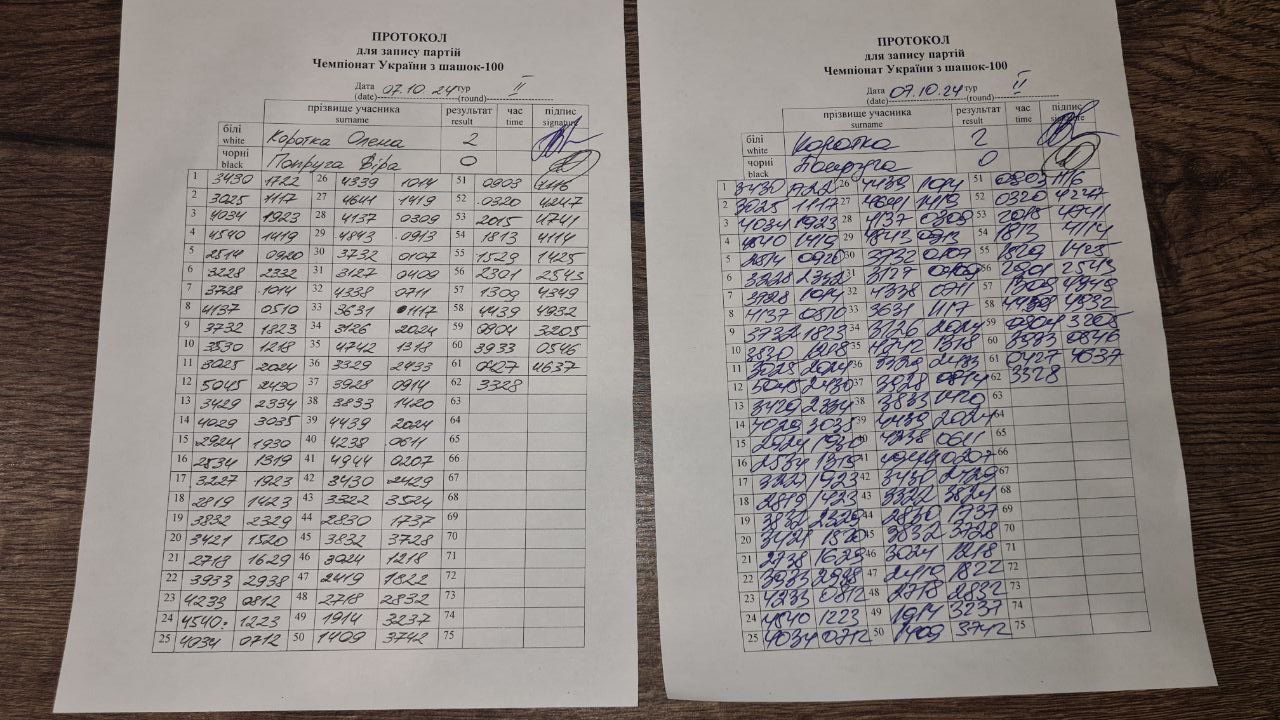 ПРОТОКОЛ
для запису партій
Чемпіонат України з шашок-100
Дата 07.10.24 тур II
(date) (round)
прізвище учасника результат час підпис
surname result time signature
білі Коротка Олена 2
white
чорні Попруга Віра 0
black
1 3430 1722 26 4339 1014 51 0903 1116
2 3025 1117 27 4641 1419 52 0320 4247
3 4034 1923 28 4137 0309 53 2015 4741
4 4540 1419 29 4843 0913 54 1813 4114
5 2514 0920 30 3732 0107 55 1529 1425
6 3228 2332 31 3127 0409 56 2301 2543
7 3728 1014 32 4338 0711 57 1309 4349
8 4137 0510 33 3631 1117 58 4439 4932
9 3732 1823 34 3126 2024 59 0904 3205
10 3530 1218 35 4742 1318 60 3933 0546
11 3025 2024 36 3329 2433 61 0427 4637
12 5045 2430 37 3928 0914 62 3328
13 3429 2334 38 3833 1420 63
14 4029 3035 39 4439 2024 64
15 2924 1930 40 4238 0611 65
16 2534 1319 41 4944 0207 66
17 3227 1923 42 3430 2429 67
18 2819 1423 43 3322 3524 68
19 3832 2329 44 2830 1737 69
20 3421 1520 45 3832 3728 70
21 2718 1629 46 3024 1218 71
22 3933 2938 47 2419 1822 72
23 4233 0812 48 2718 2832 73
24 4540 1223 49 1914 3237 74
25 4034 0712 50 1409 3742 75
ПРОТОКОЛ
для запису партій
Чемпіонат України з шашок-100
Дата 07.10.24 тур II
(date) (round)
прізвище учасника результат час підпис
surname result time signature
білі Коротка 2
white
чорні Попруга 0
black
1 3430 1722 26 4439 1014 51 0903 1116
2 3025 1117 27 4641 1419 52 0320 4247
3 4034 1923 28 4137 0309 53 2015 4741
4 4540 1419 29 4843 0913 54 1813 4114
5 2514 0920 30 3732 0107 55 1529 1425
6 3228 2332 31 3127 0409 56 2301 2543
7 3728 1014 32 4338 0711 57 1309 4349
8 4137 0510 33 3631 1117 58 4439 4932
9 3732 1823 34 3126 2024 59 0904 3205
10 3530 1218 35 4742 1318 60 3933 0546
11 3025 2024 36 3329 2433 61 0427 4637
12 5045 2430 37 3928 0914 62 3328
13 3429 2334 38 3833 1420 63
14 4029 3035 39 4439 2024 64
15 2924 1930 40 4238 0611 65
16 2534 1319 41 4944 0207 66
17 3227 1923 42 3430 2429 67
18 2819 1423 43 3322 3524 68
19 3832 2329 44 2830 1737 69
20 3421 1520 45 3832 3728 70
21 2738 1629 46 3024 1218 71
22 3933 2938 47 2419 1822 72
23 4233 0812 48 2718 2832 73
24 4540 1223 49 1914 3237 74
25 4034 0712 50 1409 3742 75